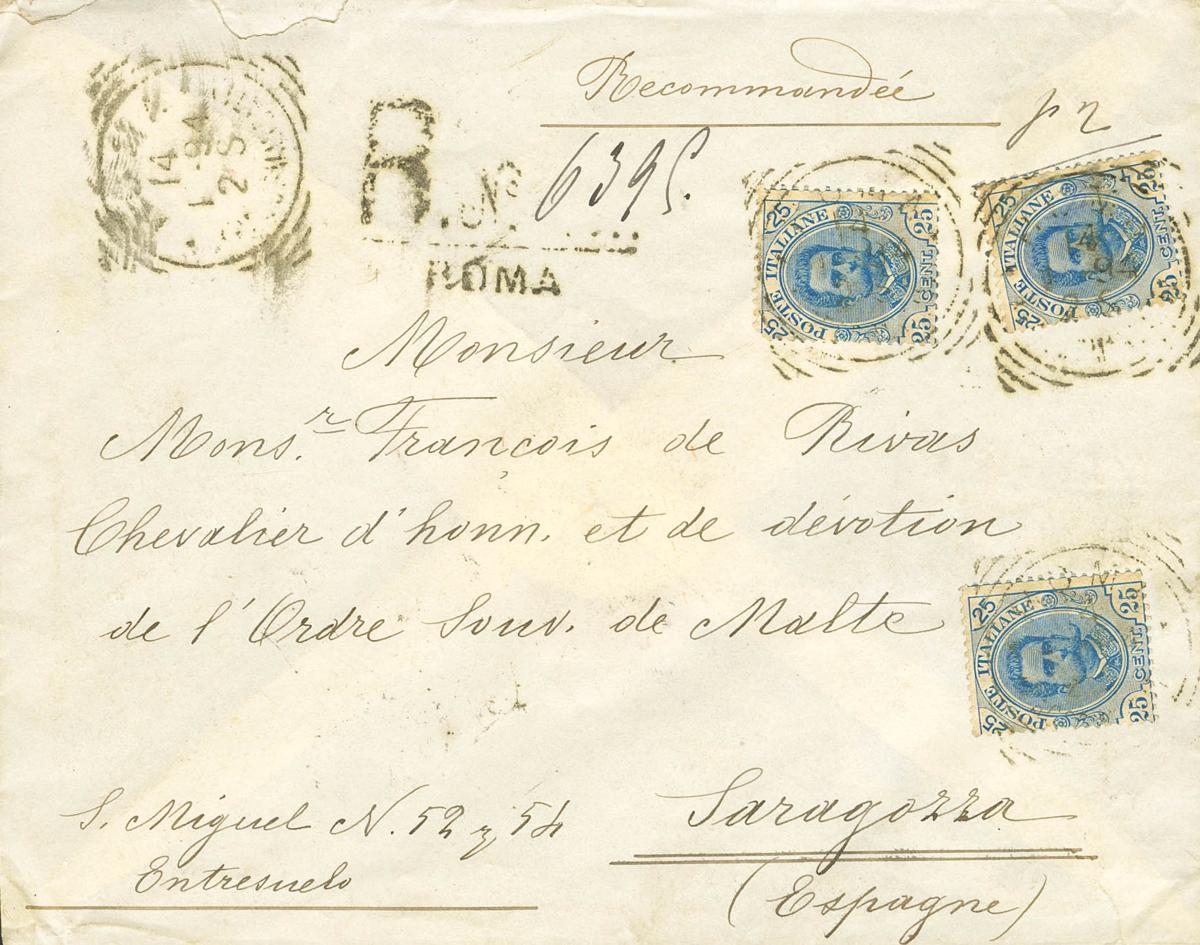 Recommandée
R. No. 6395.
ROMA
14
1 94
2 S
25 25
POSTE ITALIANE
CENT
25 25
25 25
POSTE ITALIANE
CENT
25 25
Monsieur
Mons.r François de Rivas
Chevalier d'honn. et de dévotion
de l'Ordre Souv. de Malte
25 25
POSTE ITALIANE
CENT
25 25
S. Miguel N. 52 y 54
Entresuelo
Saragozza
(Espagne)